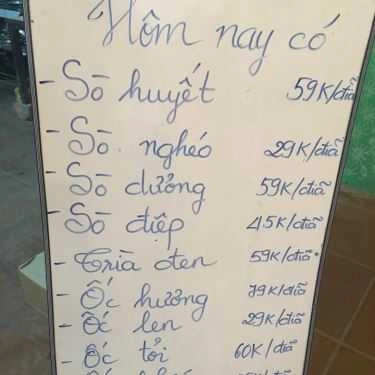 Hôm nay có
- Sò huyết 59K/đĩa
- Sò nghéo 29K/đĩa
- Sò dưỡng 59K/đĩa
- Sò điệp 45K/đĩa
- Trià đen 59K/đĩa
- Ốc hương 79K/đĩa
- Ốc len 29K/đĩa
- Ốc tỏi 60K/đĩa